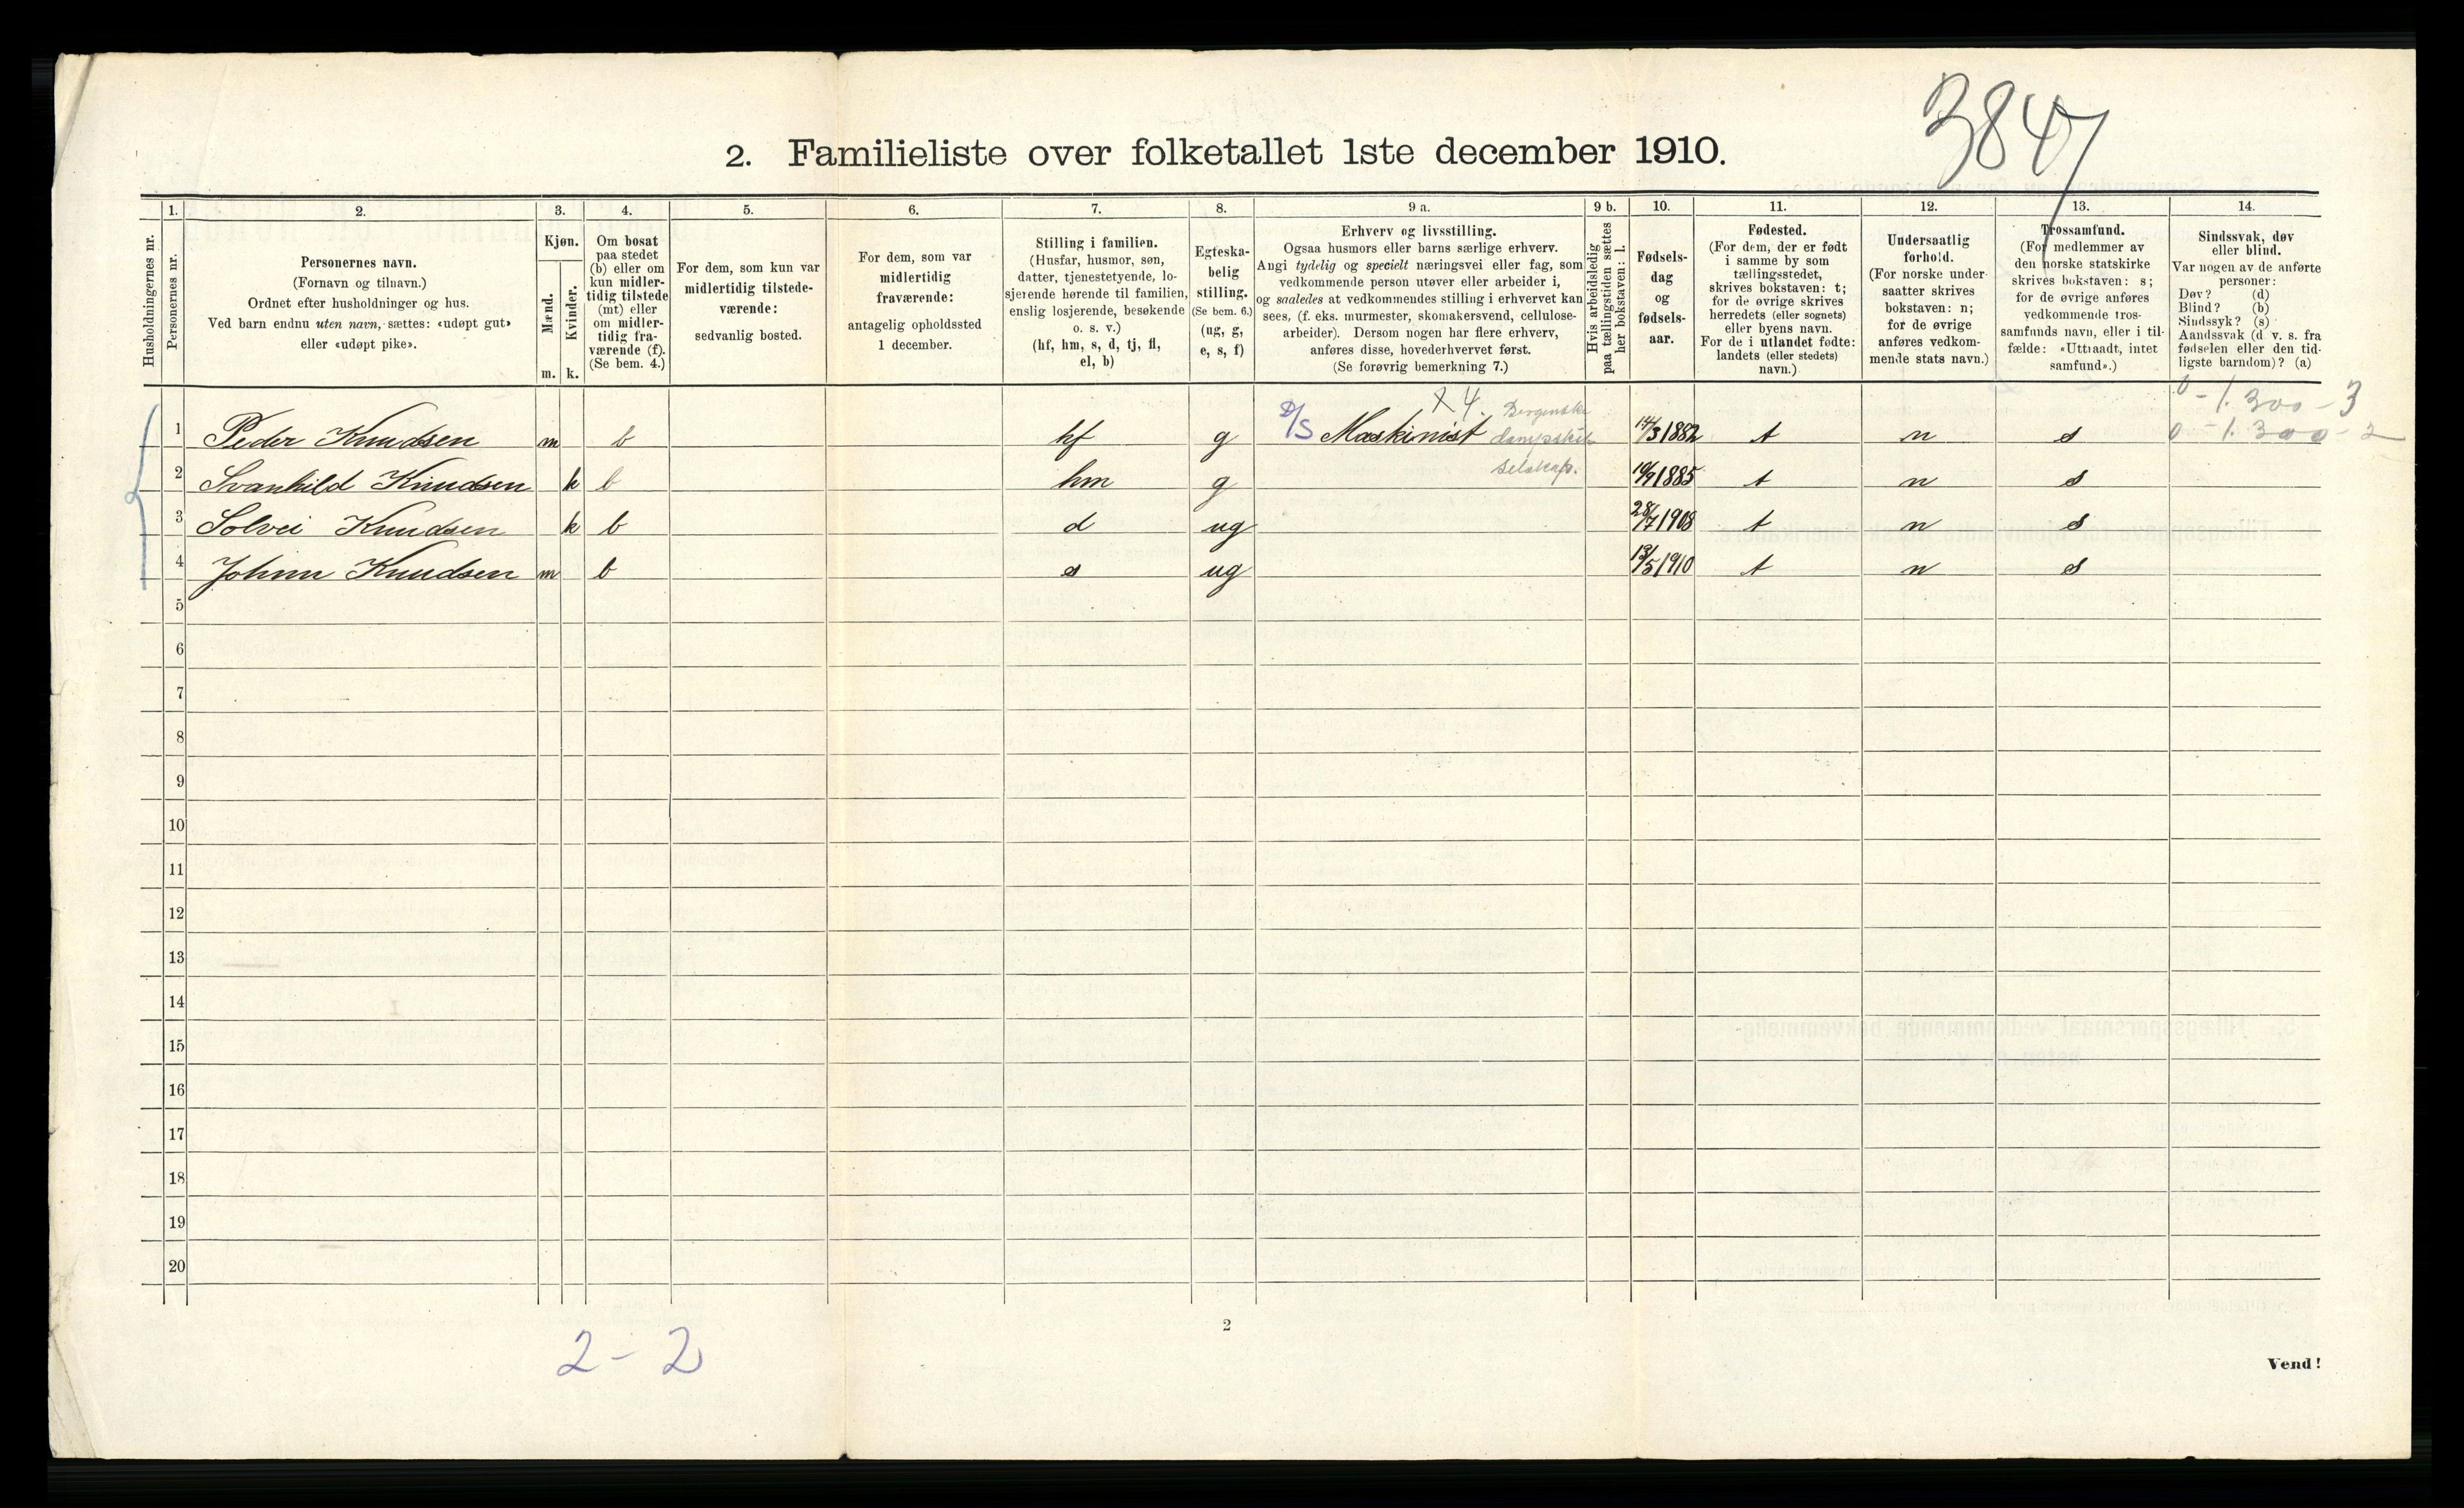 3847
2. Familieliste over folketallet 1ste december 1910.
1. 2. 3. 4. 5. 6. 7. 8. 9 a. 9 b. 10. 11. 12. 13. 14.
Husholdningernes nr.
Personernes nr.
Personernes navn.
(Fornavn og tilnavn.)
Ordnet efter husholdninger og hus.
Ved barn endnu uten navn, sættes: «udøpt gut»
eller «udøpt pike».
Kjøn.
Mænd.
Kvinder.
m. k.
Om bosat
paa stedet
(b) eller om
kun midler-
tidig tilstede
(mt) eller
om midler-
tidig fra-
værende (f).
(Se bem. 4.)
For dem, som kun var
midlertidig tilstede-
værende:
sedvanlig bosted.
For dem, som var
midlertidig
fraværende:
antagelig opholdssted
1 december.
Stilling i familien.
(Husfar, husmor, søn,
datter, tjenestetyende, lo-
sjerende hørende til familien,
enslig losjerende, besøkende
o. s. v.)
(hf, hm, s, d, tj, fl,
el, b)
Egteska-
belig
stilling.
(Se bem. 6.)
(ug, g,
e, s, f)
Erhverv og livsstilling.
Ogsaa husmors eller barns særlige erhverv.
Angi tydelig og specielt næringsvei eller fag, som
vedkommende person utøver eller arbeider i,
og saaledes at vedkommendes stilling i erhvervet kan
sees, (f. eks. murmester, skomakersvend, cellulose-
arbeider). Dersom nogen har flere erhverv,
anføres disse, hovederhvervet først.
(Se forøvrig bemerkning 7.)
Hvis arbeidsledig
paa tællingstiden sættes
her bokstaven: l.
Fødsels-
dag
og
fødsels-
aar.
Fødested.
(For dem, der er født
i samme by som
tællingsstedet,
skrives bokstaven: t;
for de øvrige skrives
herredets (eller sognets)
eller byens navn.
For de i utlandet fødte:
landets (eller stedets)
navn.)
Undersaatlig
forhold.
(For norske under-
saatter skrives
bokstaven: n;
for de øvrige
anføres vedkom-
mende stats navn.)
Trossamfund.
(For medlemmer av
den norske statskirke
skrives bokstaven: s;
for de øvrige anføres
vedkommende tros-
samfunds navn, eller i til-
fælde: «Uttraadt, intet
samfund».)
Sindssvak, døv
eller blind.
Var nogen av de anførte
personer:
Døv? (d)
Blind? (b)
Sindssyk? (s)
Aandssvak (d. v. s. fra
fødselen eller den tid-
ligste barndom)? (a)
X 4. Bergenske 0 - 1.300 - 3
1 Peder Knudsen m b hf g D/S Maskinist dampskib 14/3 1882 t n s 0 - 1.300 - 2
selskap.
2 Svanhild Knudsen k b hm g 1885 t n s
3 Solvei Knudsen k b d ug 28/7 1908 t n s
4 Johnn Knudsen m b s ug 13/5 1910 t n s
5
6
7
8
9
10
11
12
13
14
15
16
17
18
19
20
2 - 2
2
Vend!